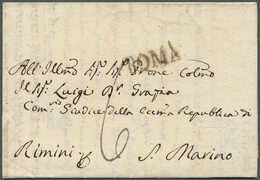 ROMA
All' Illmo Sig. Sig. Prone Colmo
Il Sig. Luigi Grazia
Com. Giudice della Eccma Republica di
6
Rimini S. Marino